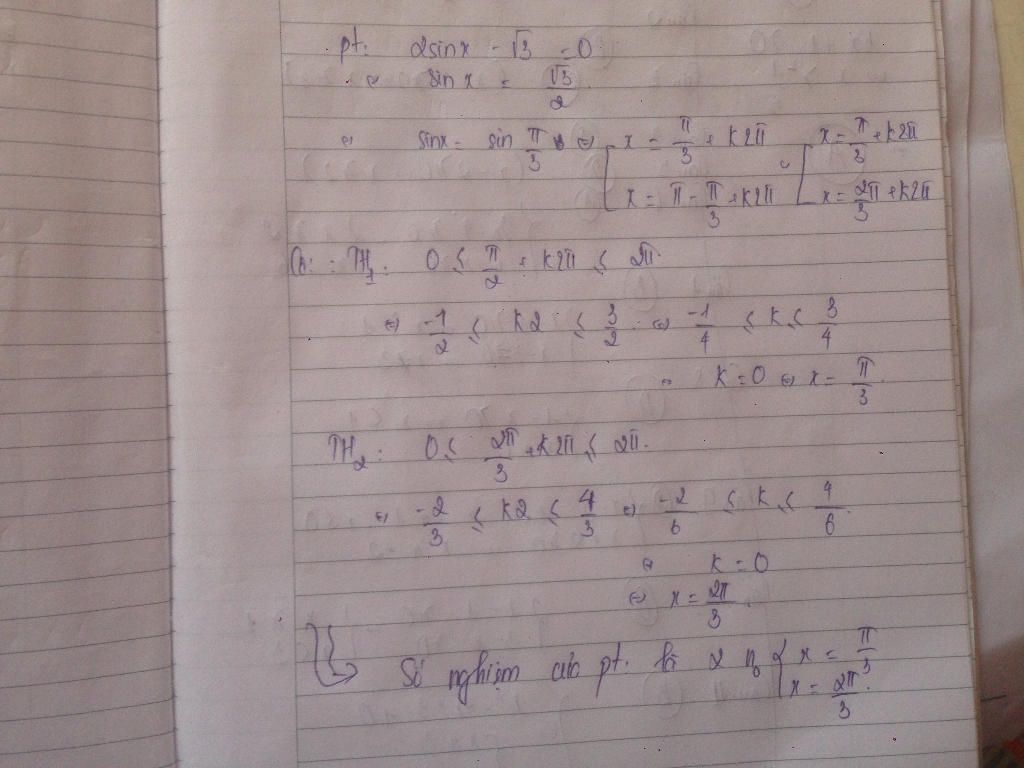 pt: 2sinx - √3 = 0
⇔ sin x = √3/2
⇔ sinx = sin π/3 ⇔ [ x = π/3 + k2π ⇔ [ x = π/3 + k2π
x = π - π/3 + k2π x = 2π/3 + k2π
TH1: 0 ≤ π/2 + k2π ≤ 2π.
⇔ -1/2 ≤ k2 ≤ 3/2 ⇔ -1/4 ≤ k ≤ 3/4
⇔ k = 0 ⇔ x = π/3.
TH2: 0 ≤ 2π/3 + k2π ≤ 2π.
⇔ -2/3 ≤ k2 ≤ 4/3 ⇔ -2/6 ≤ k ≤ 4/6
⇔ k = 0
⇔ x = 2π/3.
Số nghiệm của pt. là 2 n0 { x = π/3
x = 2π/3.